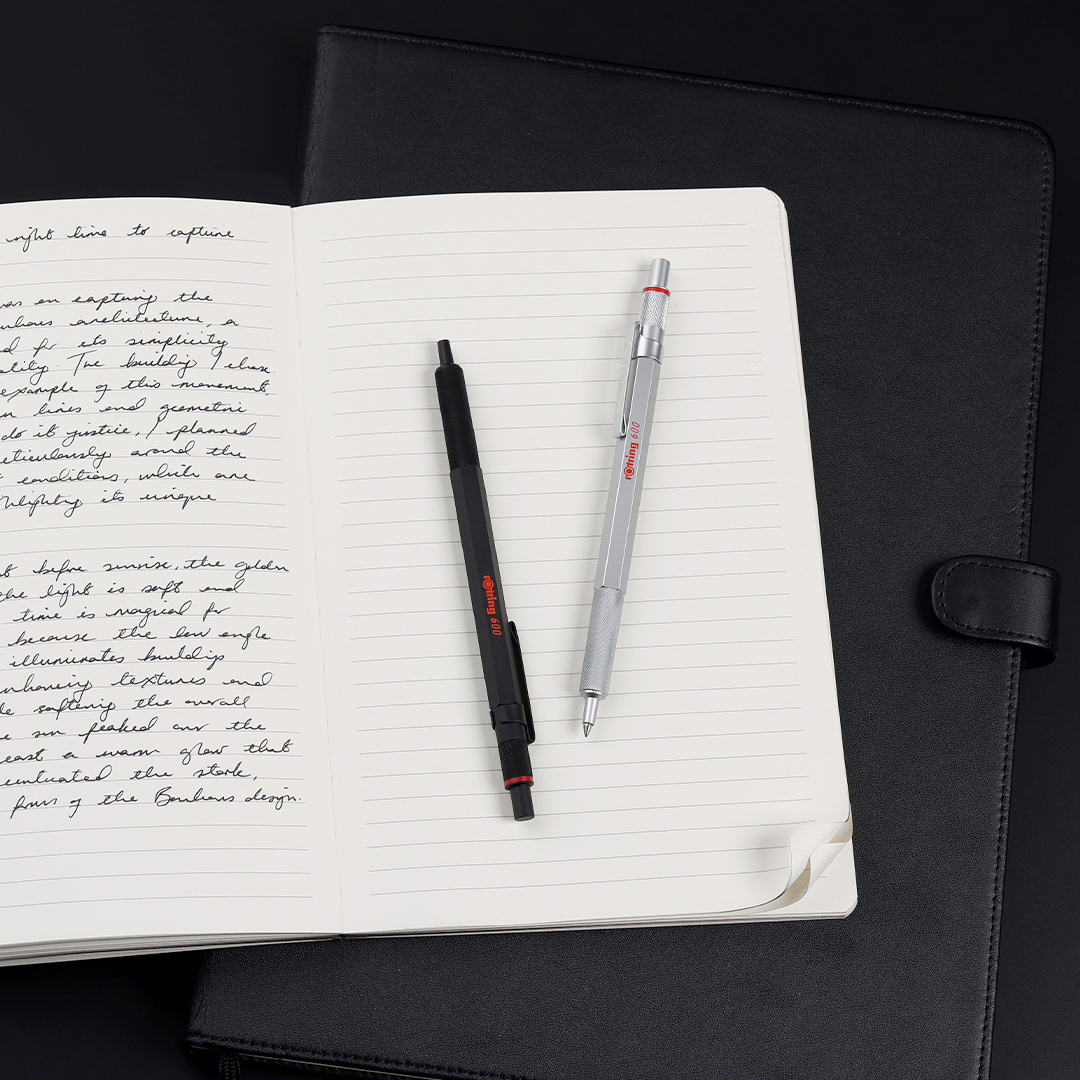 right time to capture
was on capturing the
Bauhaus architecture, a
d for its simplicity
ality. The building I chose
example of this movement,
n lines and geometric
do it justice, I planned
eticulously around the
t conditions, which are
hlighting its unique
t before sunrise, the golden
the light is soft and
time is magical for
because the low angle
illuminates buildings
nhancing textures and
le softening the overall
e sun peaked over the
cast a warm glow that
centuated the stark,
forms of the Bauhaus design.
rotring 600
rotring 600